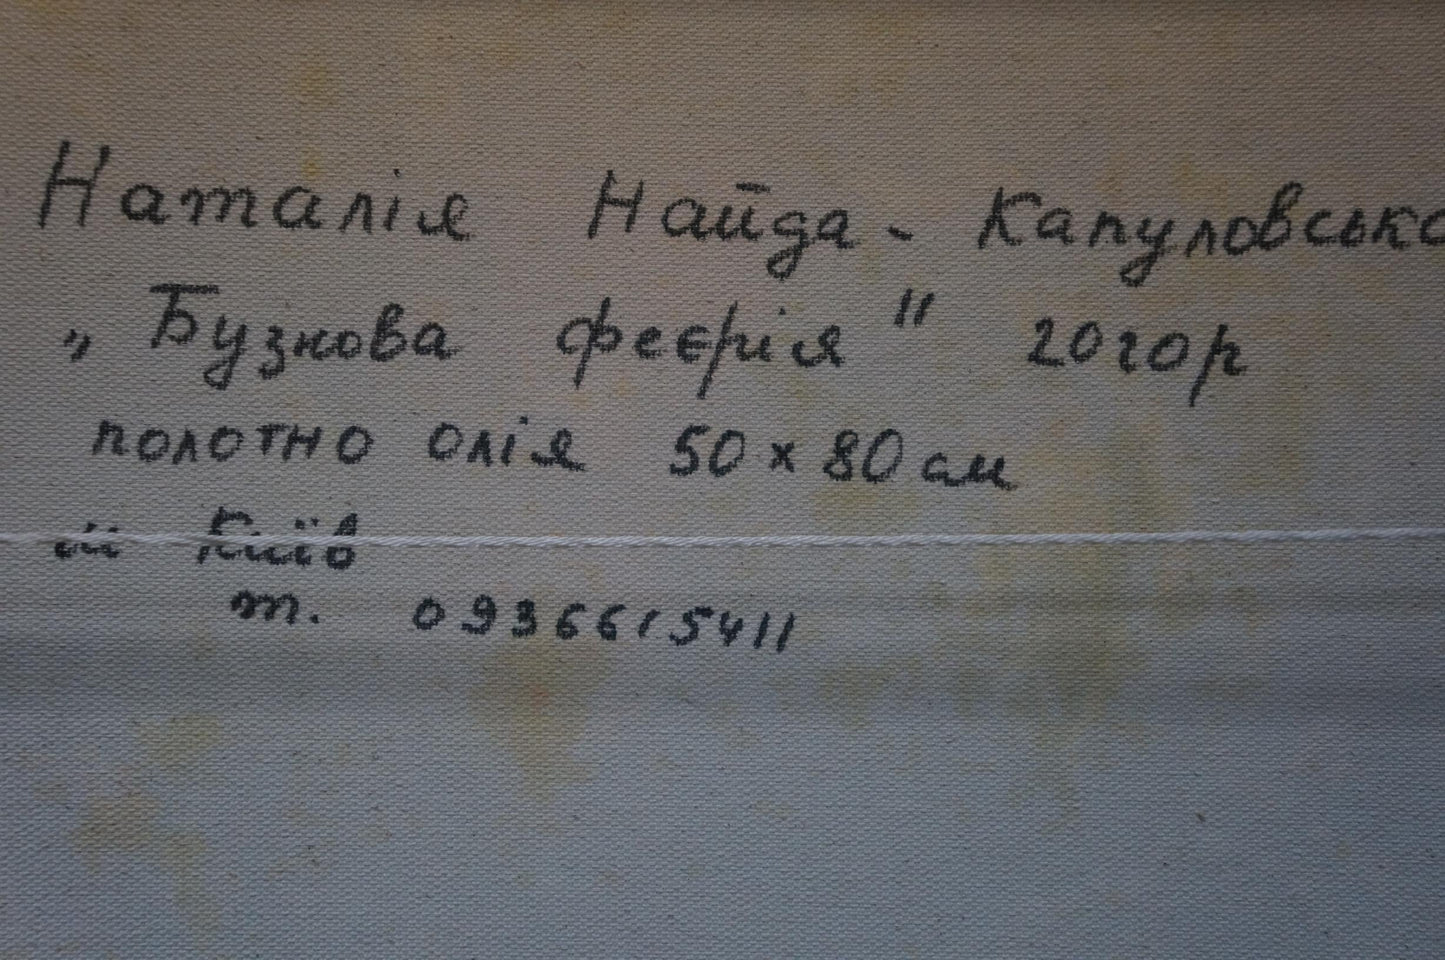 Наталія Найда - Капуловська
„Бузкова феєрія" 2020р
полотно олія 50 x 80 см
м Київ
т. 0936615411